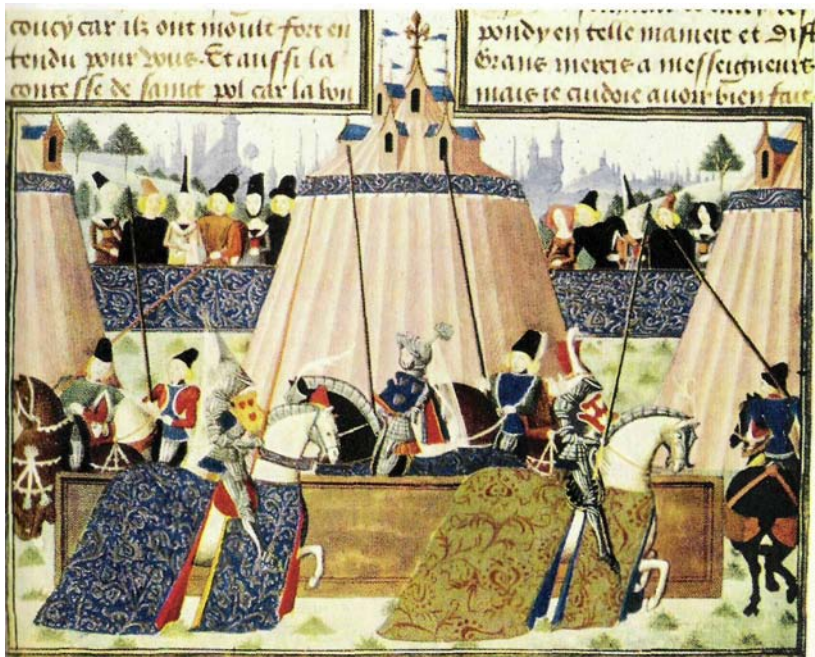 coucy car ilz ont moult fort en
tendu pour vous. Et aussi la
contesse de sainct pol car la
pondy en telle maniere et
Grans mercis a messeigneurs
mais ie cuidoie auoir bien fait